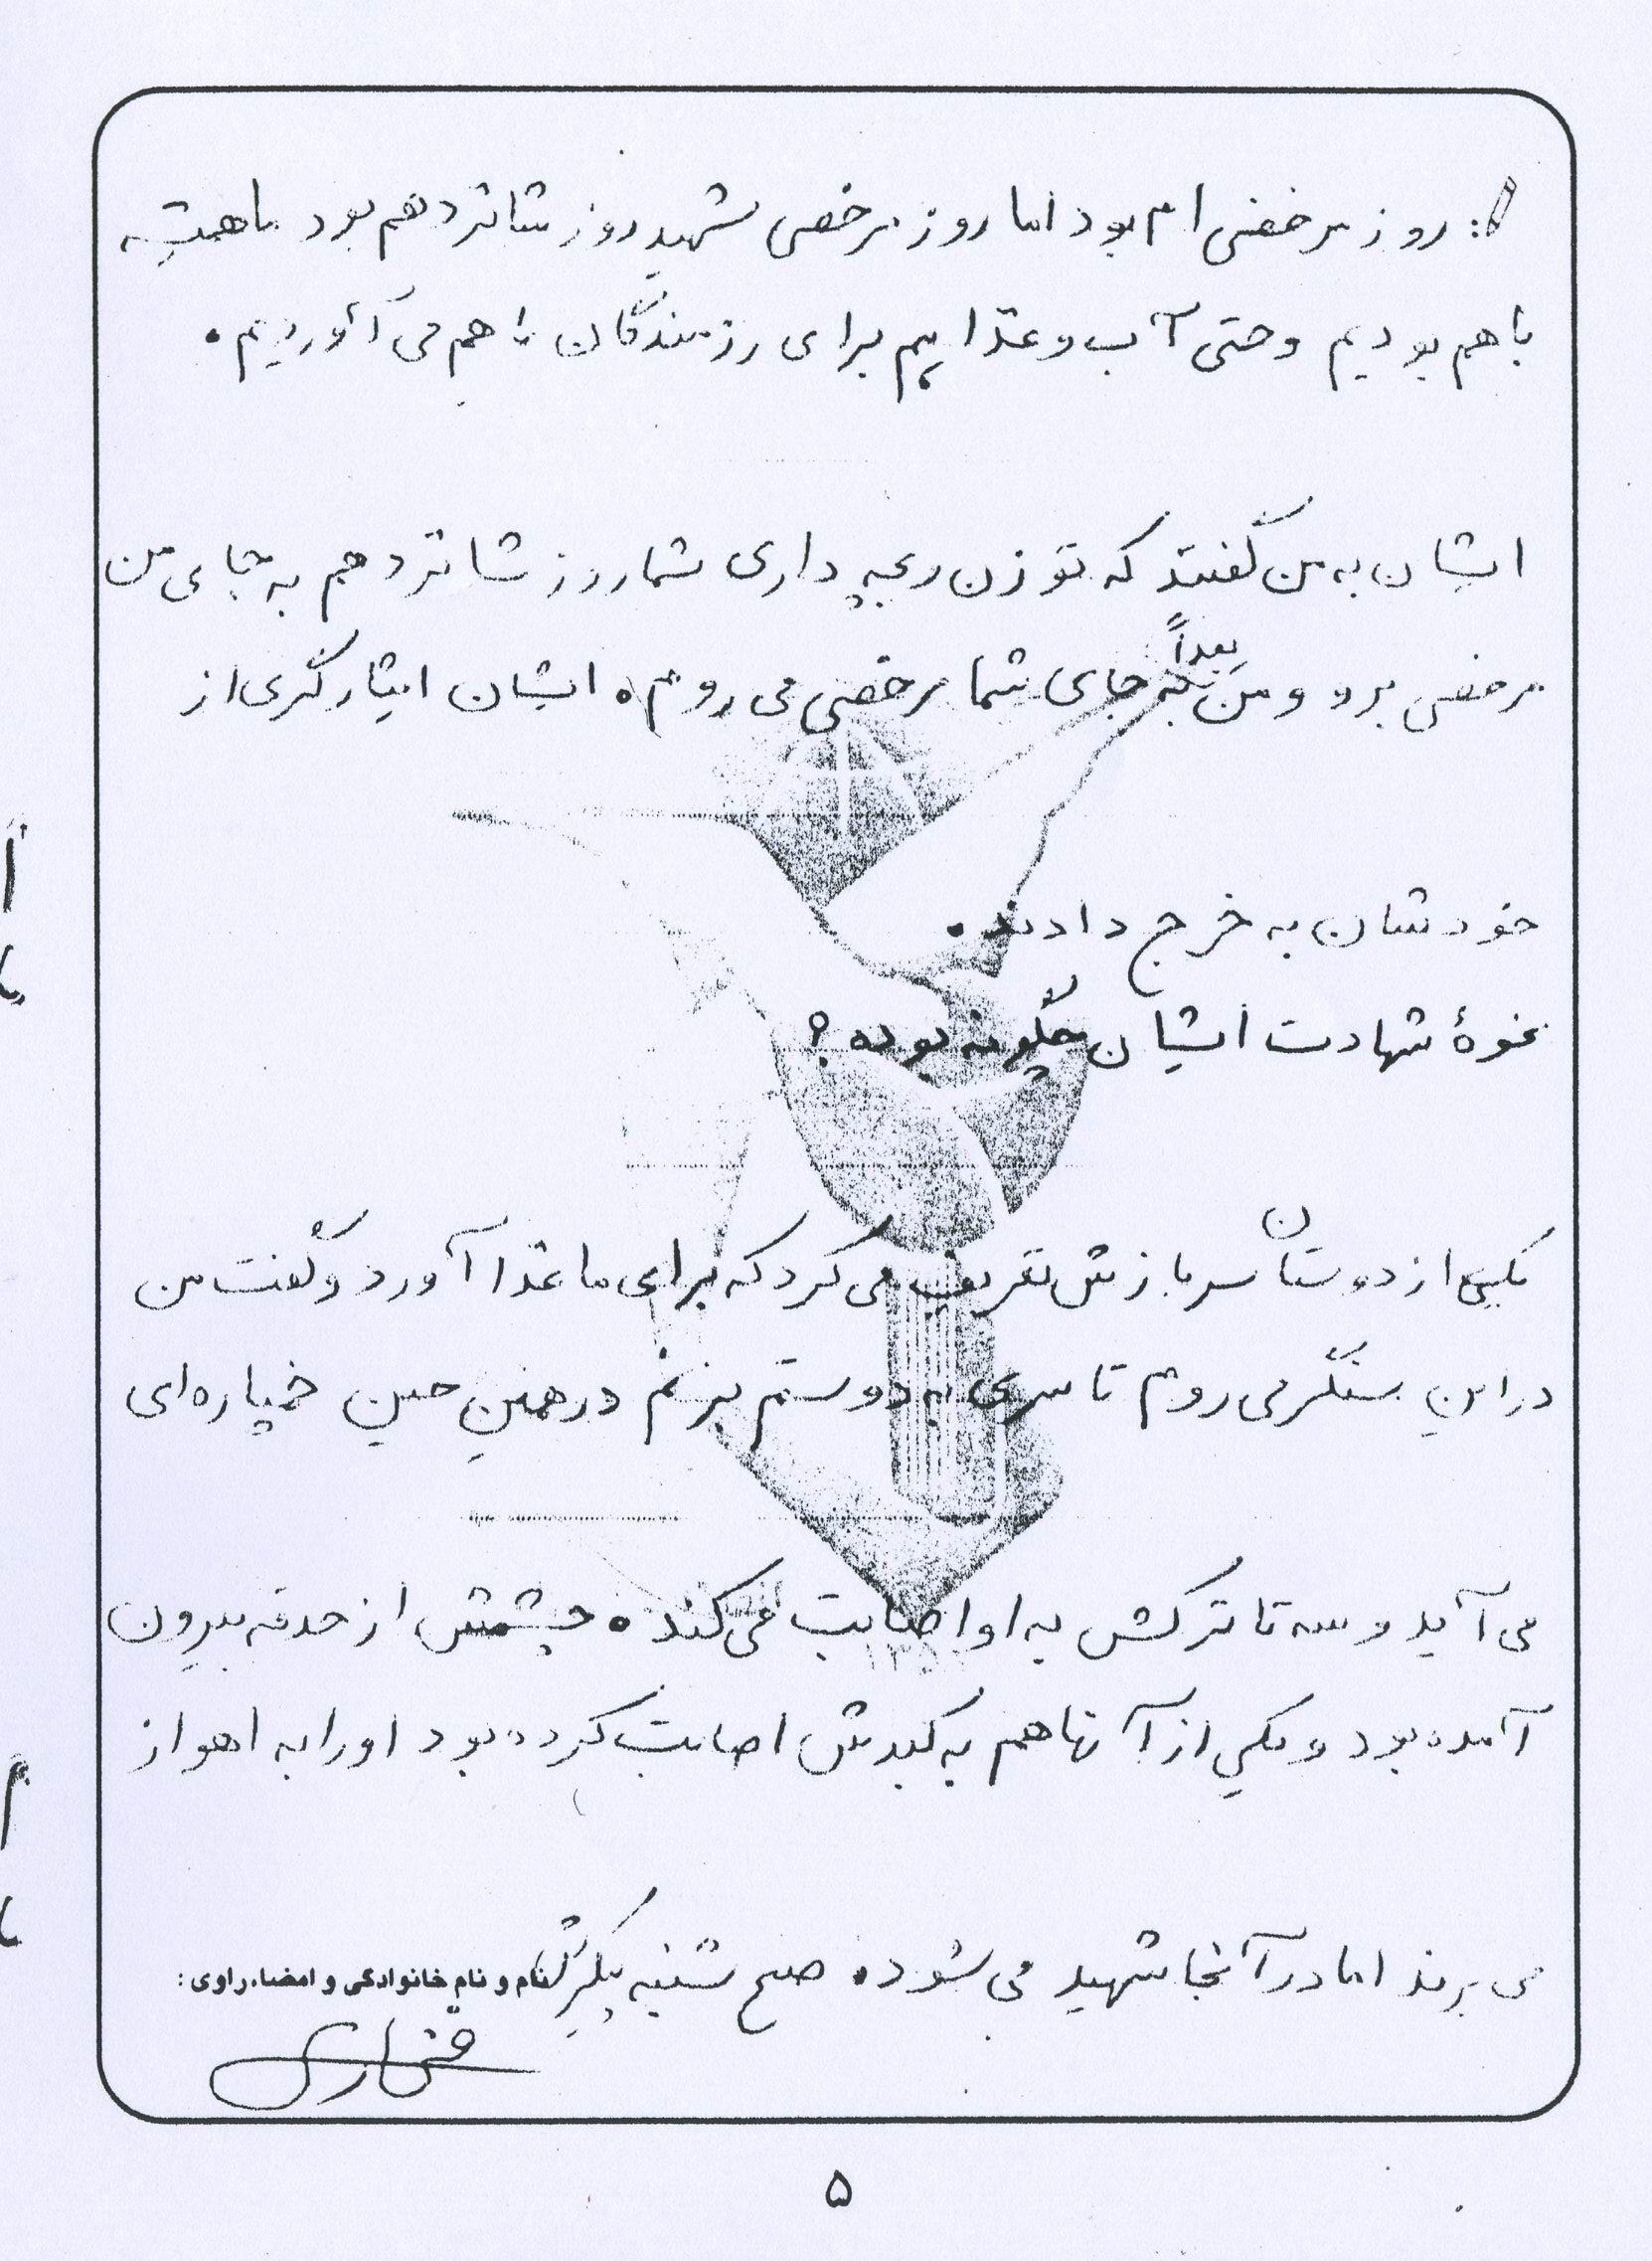 : روز مرخصی ام بود اما روز مرخصی شهید روز شانزدهم بود ما همیشه
با هم بودیم وحتی آب وغذا هم برای رزمندگان با هم می آوردیم.
ایشان به من گفتند که تو زن وبچه داری شما روز شانزدهم به جای من
مرخصی برو و من بعداً به جای شما مرخصی می روم. ایشان ایثارگری از
خودشان به خرج دادند.
نحوهٔ شهادت ایشان چگونه بوده؟
یکی از دوستان سربازش تعریف می کرد که برای ما غذا آورد و گفت من
در این سنگر می روم تا سری به دوستم بزنم در همین حین خمپاره ای
می آید و سه تا ترکش به او اصابت می کند. چشمش از حدقه بیرون
آمده بود و یکی از آنها هم به کبدش اصابت کرده بود او را به اهواز
می برند اما در آنجا شهید می شود. صبح شنبه پیکرش
نام و نام خانوادگی و امضاء راوی:
۵